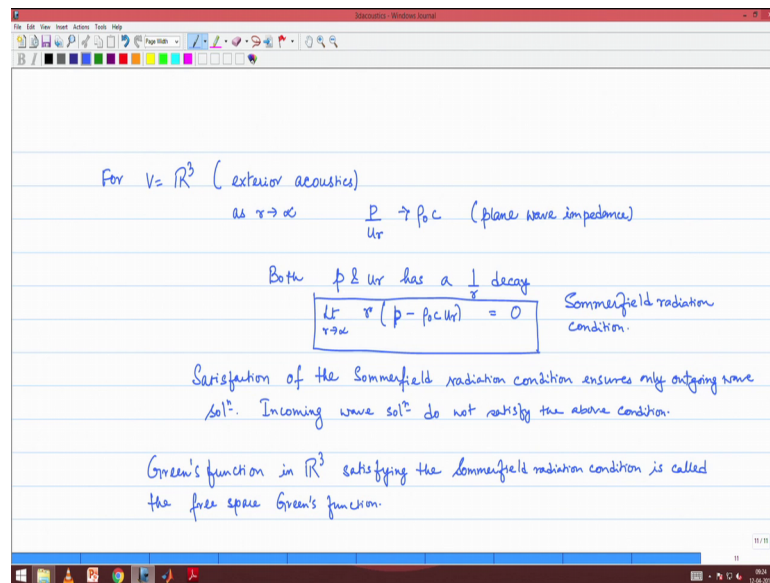 3dacoustics - Windows Journal
File Edit View Insert Actions Tools Help
Page Width
B I
For V = ℝ³ ( exterior acoustics)
as r→∝ p/Ur → ρ₀c (plane wave impedance)
Both p & Ur has a 1/r decay
Lt r→∝ r ( p - ρ₀cUr) = 0 Sommerfield radiation
condition.
Satisfaction of the Sommerfield radiation condition ensures only outgoing wave
solⁿ. Incoming wave solⁿ do not satisfy the above condition.
Green's function in ℝ³ satisfying the Sommerfield radiation condition is called
the free space Green's function.
11 / 11
11
09:24